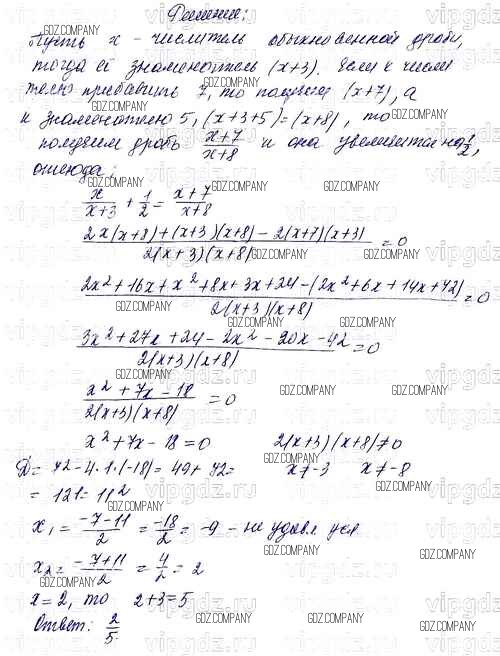 Решение:
Пусть x - числитель обыкновенной дроби,
тогда её знаменатель (x+3). Если к числи
телю прибавить 7, то получим (x+7), а
к знаменателю 5, (x+3+5)=(x+8), то
получим дробь (x+7)/(x+8) и она увеличится на 1/2,
отсюда:
x/(x+3) + 1/2 = (x+7)/(x+8)
(2x(x+8)+(x+3)(x+8)-2(x+7)(x+3))/(2(x+3)(x+8)) =0
(2x²+16x+x²+8x+3x+24-(2x²+6x+14x+42))/(2(x+3)(x+8)) =0
(3x²+27x+24-2x²-20x-42)/(2(x+3)(x+8)) =0
(x²+7x-18)/(2(x+3)(x+8)) =0
x²+7x-18=0 2(x+3)(x+8)≠0
D=7²-4·1·(-18)=49+72= x≠-3 x≠-8
=121=11²
x₁=(-7-11)/2 = -18/2 = -9 - не удовл. усл
x₂=(-7+11)/2 = 4/2 = 2
x=2, то 2+3=5
Ответ: 2/5.